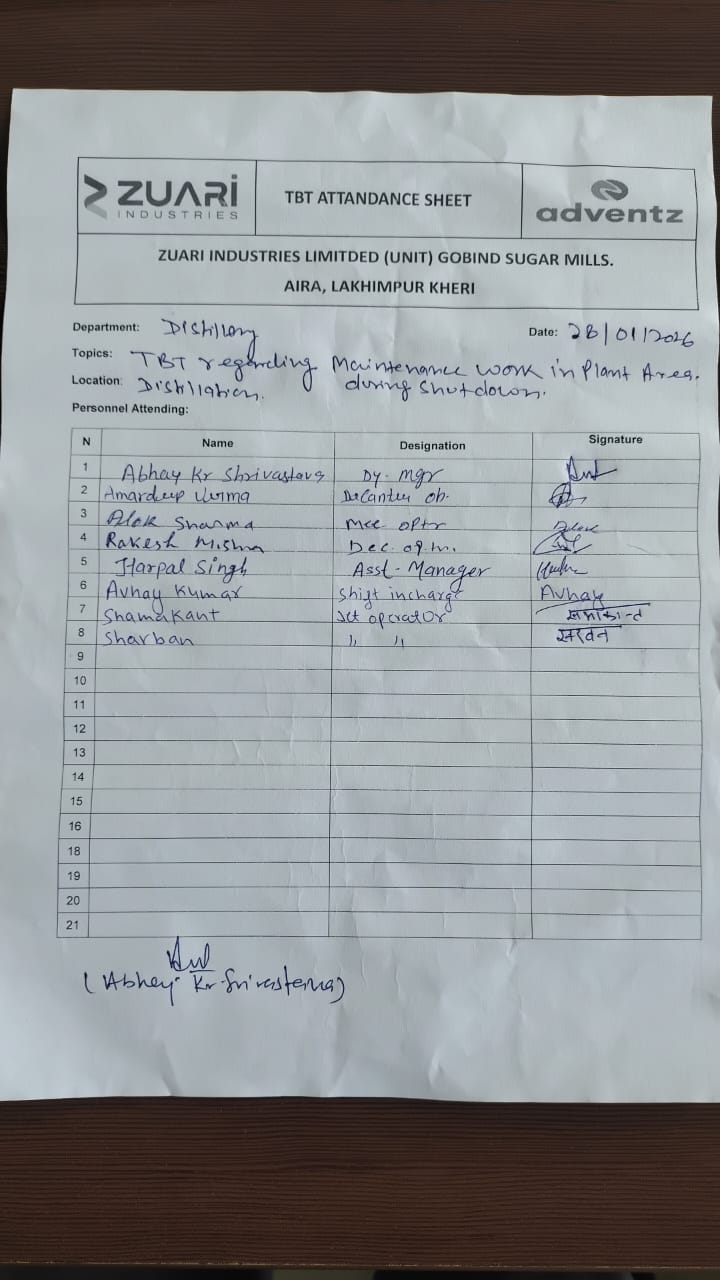 ZUARI
INDUSTRIES
TBT ATTANDANCE SHEET
adventz
ZUARI INDUSTRIES LIMITDED (UNIT) GOBIND SUGAR MILLS.
AIRA, LAKHIMPUR KHERI
Department: Distillery
Date: 28/01/2026
Topics: TBT regarding Maintenance work in Plant Area.
during shutdown.
Location: Distillation.
Personnel Attending:
N Name Designation Signature
1 Abhay Kr Shrivastava Dy. mgr
2 Amardeep Verma Decanter
3 Alok Sharma Mee optr Alok
4 Rakesh Mishra Dec.
5 Harpal Singh Asst-Manager
6 Avhay Kumar Shift incharge Avhay
7 Shamakant operator समाकान्त
8 Sharban " " सरवन
9
10
11
12
13
14
15
16
18
19
20
21
(Abhay Kr Srivastava)